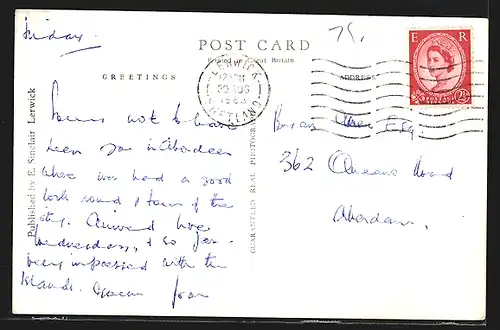 Friday.
POST CARD
Printed in Great Britain
GREETINGS
ADDRESS
E R
POSTAGE
2½
LERWICK
30 AUG
SHETLAND
Published by E. Sinclair Lerwick
GUARANTEED REAL PHOTOGRAPH
Sorry not to have
seen you in Aberdeen
where we had a good
look round & tour of the
city. Arrived here
Wednesday, & so far
been impressed with the
Islands.
Esq
362 Queens Road
Aberdeen.